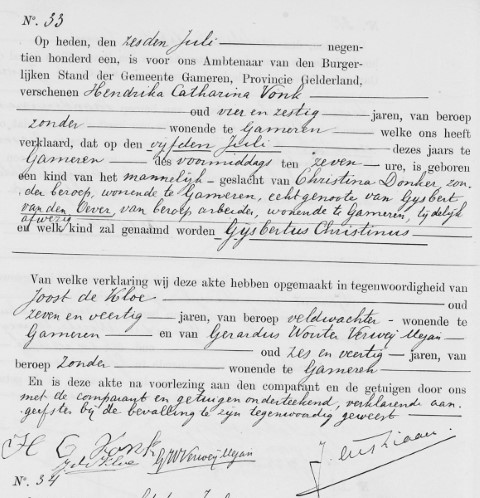 No. 33
Op heden, den zesden Juli negen-
tien honderd een, is voor ons Ambtenaar van den Burger-
lijken Stand der Gemeente Gameren, Provincie Gelderland,
verschenen Hendrika Catharina Vonk
oud vier en zestig jaren, van beroep
zonder wonende te Gameren welke ons heeft
verklaard, dat op den vijfden Juli dezes jaars te
Gameren des voormiddags ten zeven ure, is geboren
een kind van het mannelijk geslacht van Christina Donker, zon-
der beroep, wonende te Gameren, echtgenoote van Gysbert
van den Oever, van beroep arbeider, wonende te Gameren, tijdelijk
afwezig
en welk kind zal genaamd worden Gysbertus Christinus
Van welke verklaring wij deze akte hebben opgemaakt in tegenwoordigheid van
Joost de Kloe oud
zeven en veertig jaren, van beroep veldwachter wonende te
Gameren en van Gerardus Wouter Verweij Mejan
oud zes en veertig jaren, van
beroep zonder wonende te Gameren
En is deze akte na voorlezing aan den comparant en de getuigen door ons
met de comparant en getuigen onderteekend, verklarende aan-
geefster bij de bevalling te zijn tegenwoordig geweest
H C Vonk
J de Kloe GWVerweij Mejan
No. 34